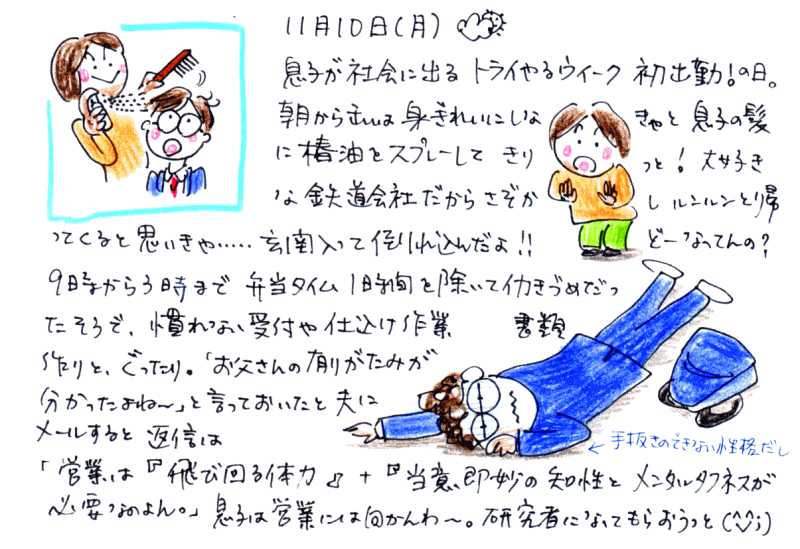 11月10日(月)
息子が社会に出る トライやるウィーク 初出勤!の日。
朝から 身ぎれいにしな きゃと 息子の髪
に椿油をスプレーして きり っと! 大好き
な鉄道会社だから さぞか し ルンルンと帰
ってくると思いきや…… 玄関入って倒れ込んだよ!! どーなってんの?
9時から3時まで 弁当タイム 1時間を除いて働きづめだっ
たそうで、慣れない受付や仕込け作業 書類
作りと、ぐったり。「お父さんの有りがたみが
分かったよね〜」と言っておいたと夫に
メールすると 返信は
←手抜きのできない性格だし
「営業は『飛び回る体力』+『当意即妙の知性とメンタルタフネスが
必要なのよん。」息子は営業には向かんわ〜。研究者になってもらおうっと(^^;)